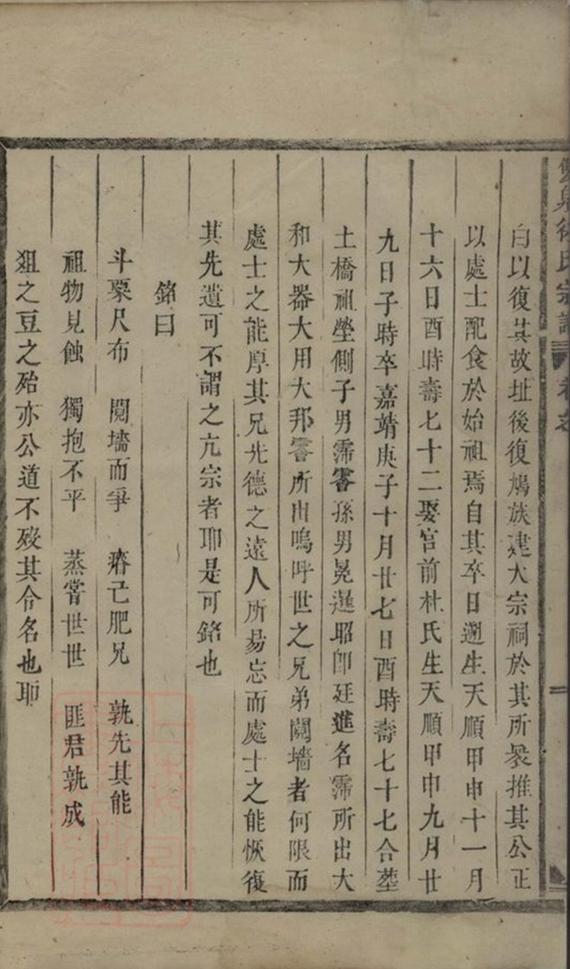 徐氏宗譜
白以復其故址後復鳩族建大宗祠於其所衆推其公正
以處士配食於始祖焉自其卒日遡生天順甲申十一月
十六日酉時壽七十二娶官前杜氏生天順甲申九月廿
九日子時卒嘉靖庚子十月廿七日酉時壽七十七合塟
土橋祖塋側子男霈霱孫男晃暹昭卽廷進名霈所出大
和大器大用大邦霱所出嗚呼世之兄弟鬩墻者何限而
處士之能厚其兄先德之遠人所易忘而處士之能恢復
其先遺可不謂之亢宗者耶是可銘也
銘曰
斗粟尺布 鬩墻而爭 瘠己肥兄 孰先其能
祖物見蝕 獨抱不平 蒸嘗世世 匪君孰成
俎之豆之殆亦公道不歿其令名也耶